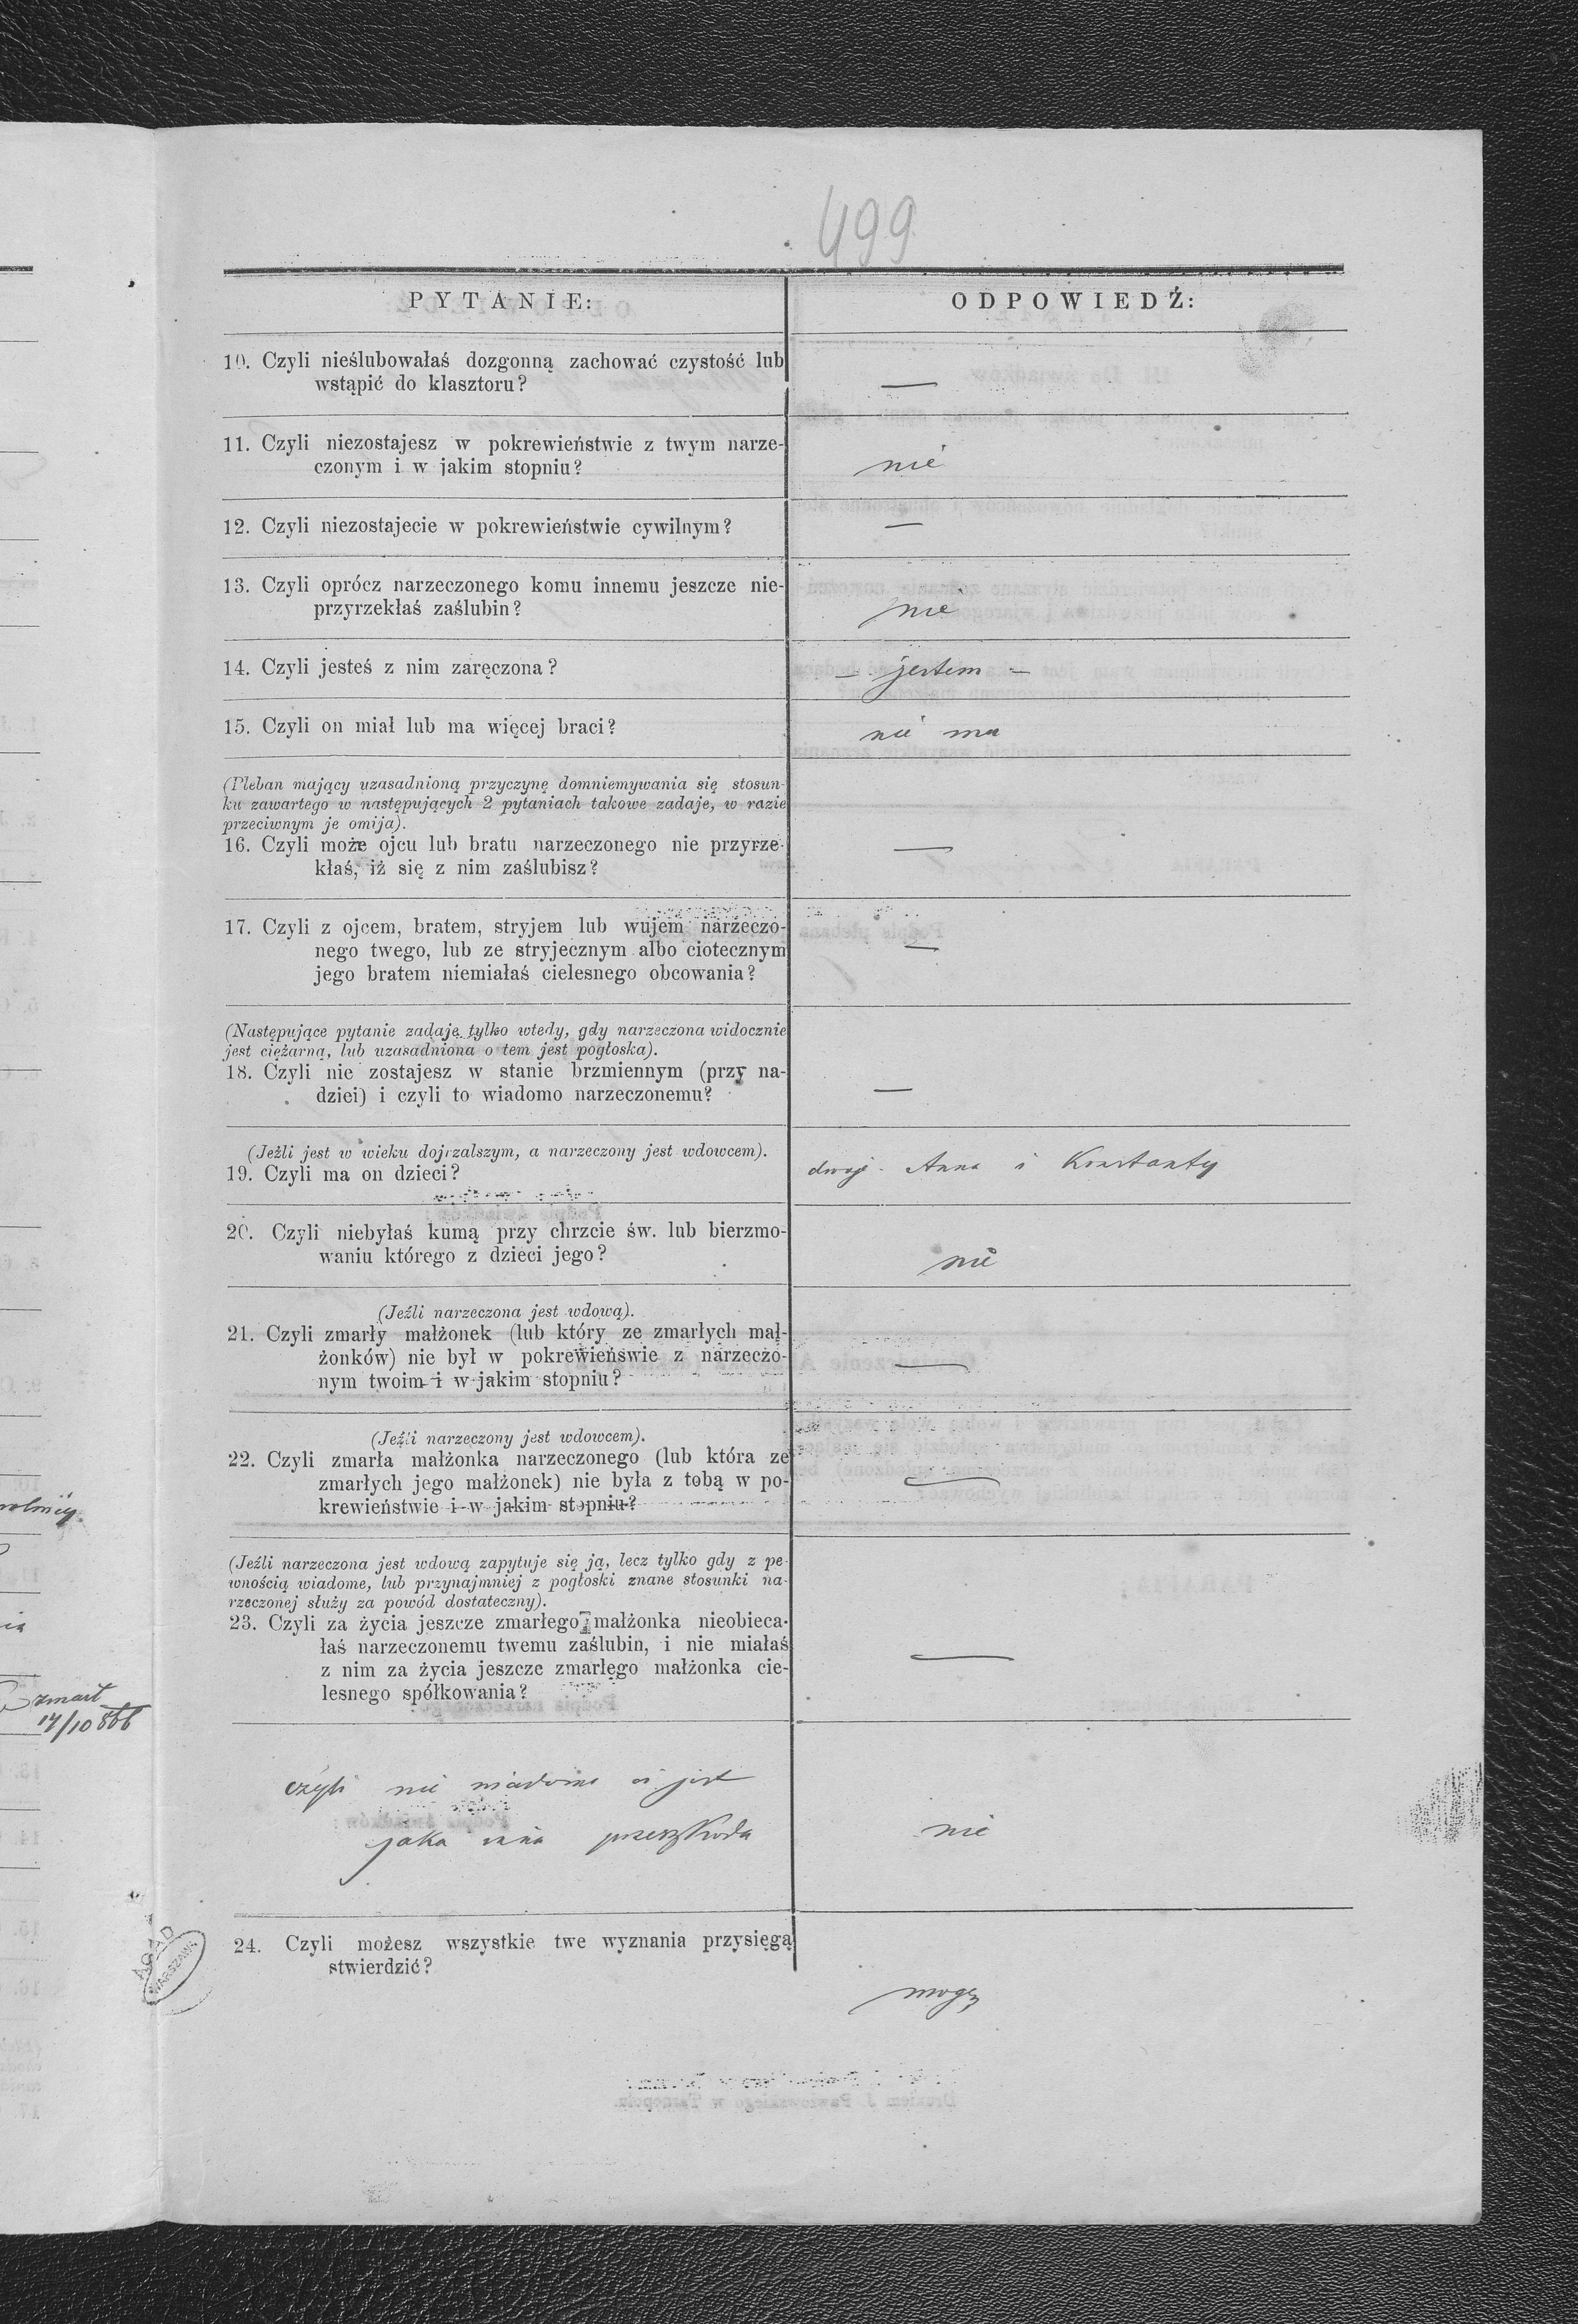 499
PYTANIE:
ODPOWIEDŹ:
10. Czyli nieślubowałaś dozgonną zachować czystość lub
wstąpić do klasztoru?
—
11. Czyli niezostajesz w pokrewieństwie z twym narze-
czonym i w jakim stopniu?
nie
12. Czyli niezostajecie w pokrewieństwie cywilnym?
—
13. Czyli oprócz narzeczonego komu innemu jeszcze nie-
przyrzekłaś zaślubin?
nie
14. Czyli jesteś z nim zaręczona?
— jestem —
15. Czyli on miał lub ma więcej braci?
nie ma
(Pleban mający uzasadnioną przyczynę domniemywania się stosun-
ku zawartego w następujących 2 pytaniach takowe zadaje, w razie
przeciwnym je omija).
16. Czyli może ojcu lub bratu narzeczonego nie przyrze-
kłaś, iż się z nim zaślubisz?
—
17. Czyli z ojcem, bratem, stryjem lub wujem narzeczo-
nego twego, lub ze stryjecznym albo ciotecznym
jego bratem niemiałaś cielesnego obcowania?
—
(Następujące pytanie zadaje tylko wtedy, gdy narzeczona widocznie
jest ciężarną, lub uzasadniona o tem jest pogłoska).
18. Czyli nie zostajesz w stanie brzmiennym (przy na-
dziei) i czyli to wiadomo narzeczonemu?
—
(Jeźli jest w wieku dojrzalszym, a narzeczony jest wdowcem).
19. Czyli ma on dzieci?
dwoje Anna i Konstanty
20. Czyli niebyłaś kumą przy chrzcie św. lub bierzmo-
waniu którego z dzieci jego?
nie
(Jeźli narzeczona jest wdową).
21. Czyli zmarły małżonek (lub który ze zmarłych mał-
żonków) nie był w pokrewieńswie z narzeczo-
nym twoim i w jakim stopniu?
—
(Jeźli narzeczony jest wdowcem).
22. Czyli zmarła małżonka narzeczonego (lub która ze
zmarłych jego małżonek) nie była z tobą w po-
krewieństwie i w jakim stopniu?
—
(Jeźli narzeczona jest wdową zapytuje się ją, lecz tylko gdy z pe-
wnością wiadome, lub przynajmniej z pogłoski znane stosunki na-
rzeczonej służy za powód dostateczny).
23. Czyli za życia jeszcze zmarłego małżonka nieobieca-
łaś narzeczonemu twemu zaślubin, i nie miałaś
z nim za życia jeszcze zmarłego małżonka cie-
lesnego spółkowania?
—
czyli nie wiadomo ci jest
jaka inna przeszkoda
nie
24. Czyli możesz wszystkie twe wyznania przysięgą
stwierdzić?
mogę
zmarł
17/10 866
AGAD
WARSZAWA